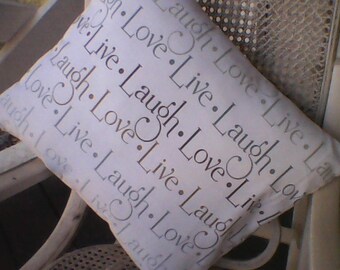 Laugh • Love
Love • Live • Laugh •
Live • Laugh • Love • Live •
Laugh • Love • Live • Laugh • Love
Live • Laugh • Love • Live • Laugh
Love • Live • Laugh • Love
Live • Laugh • Love
Laugh • Love